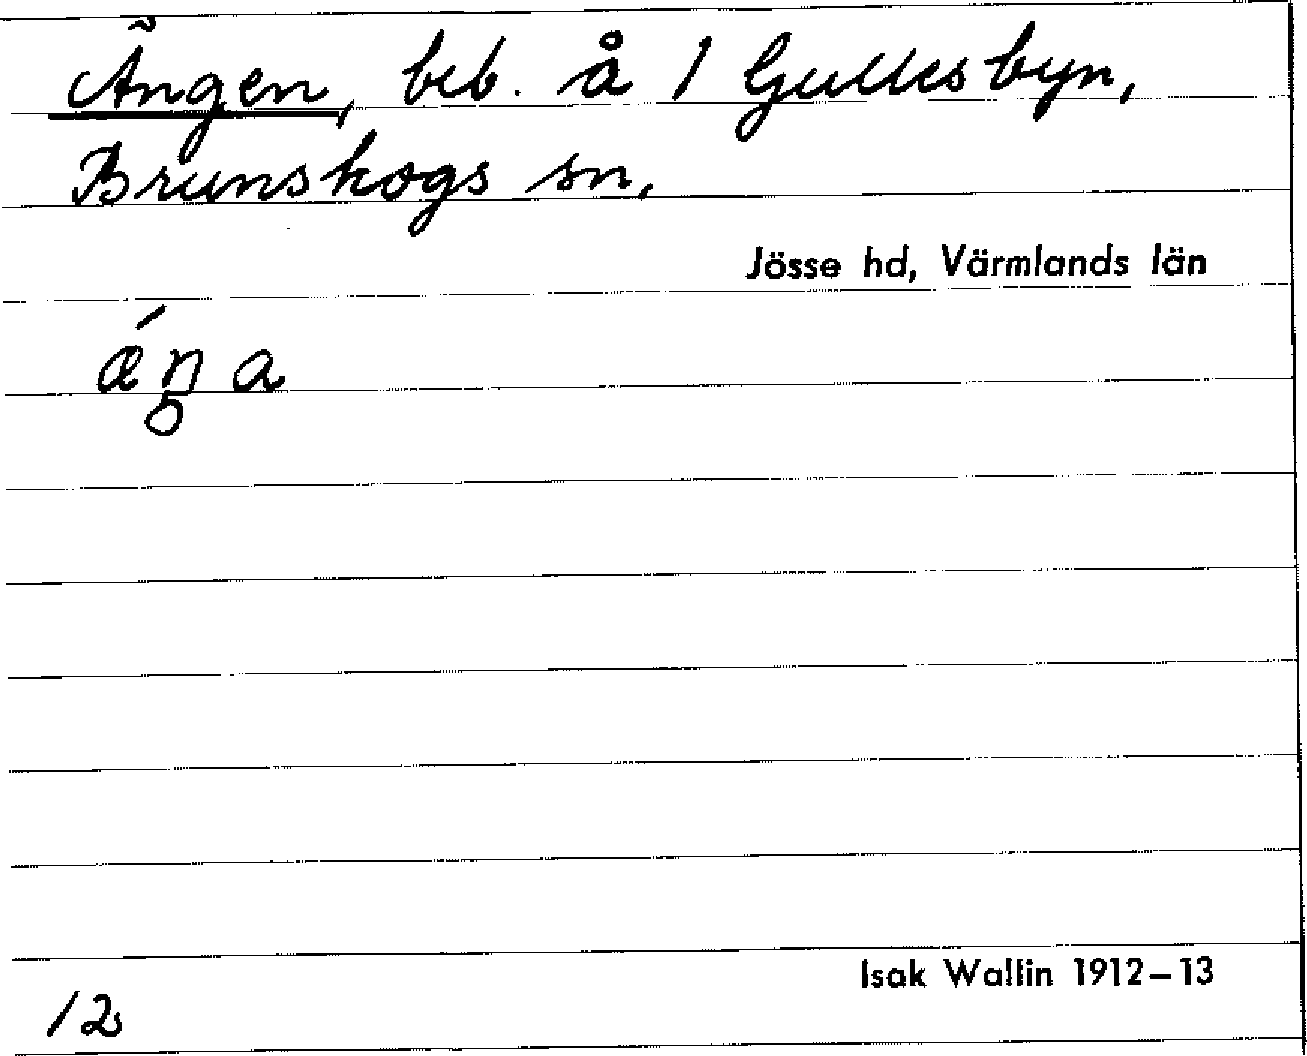 Ängen, beb. å 1 Gullesbyn,
Brunskogs sn,
Jösse hd, Värmlands län
Isak Wallin 1912–13
12